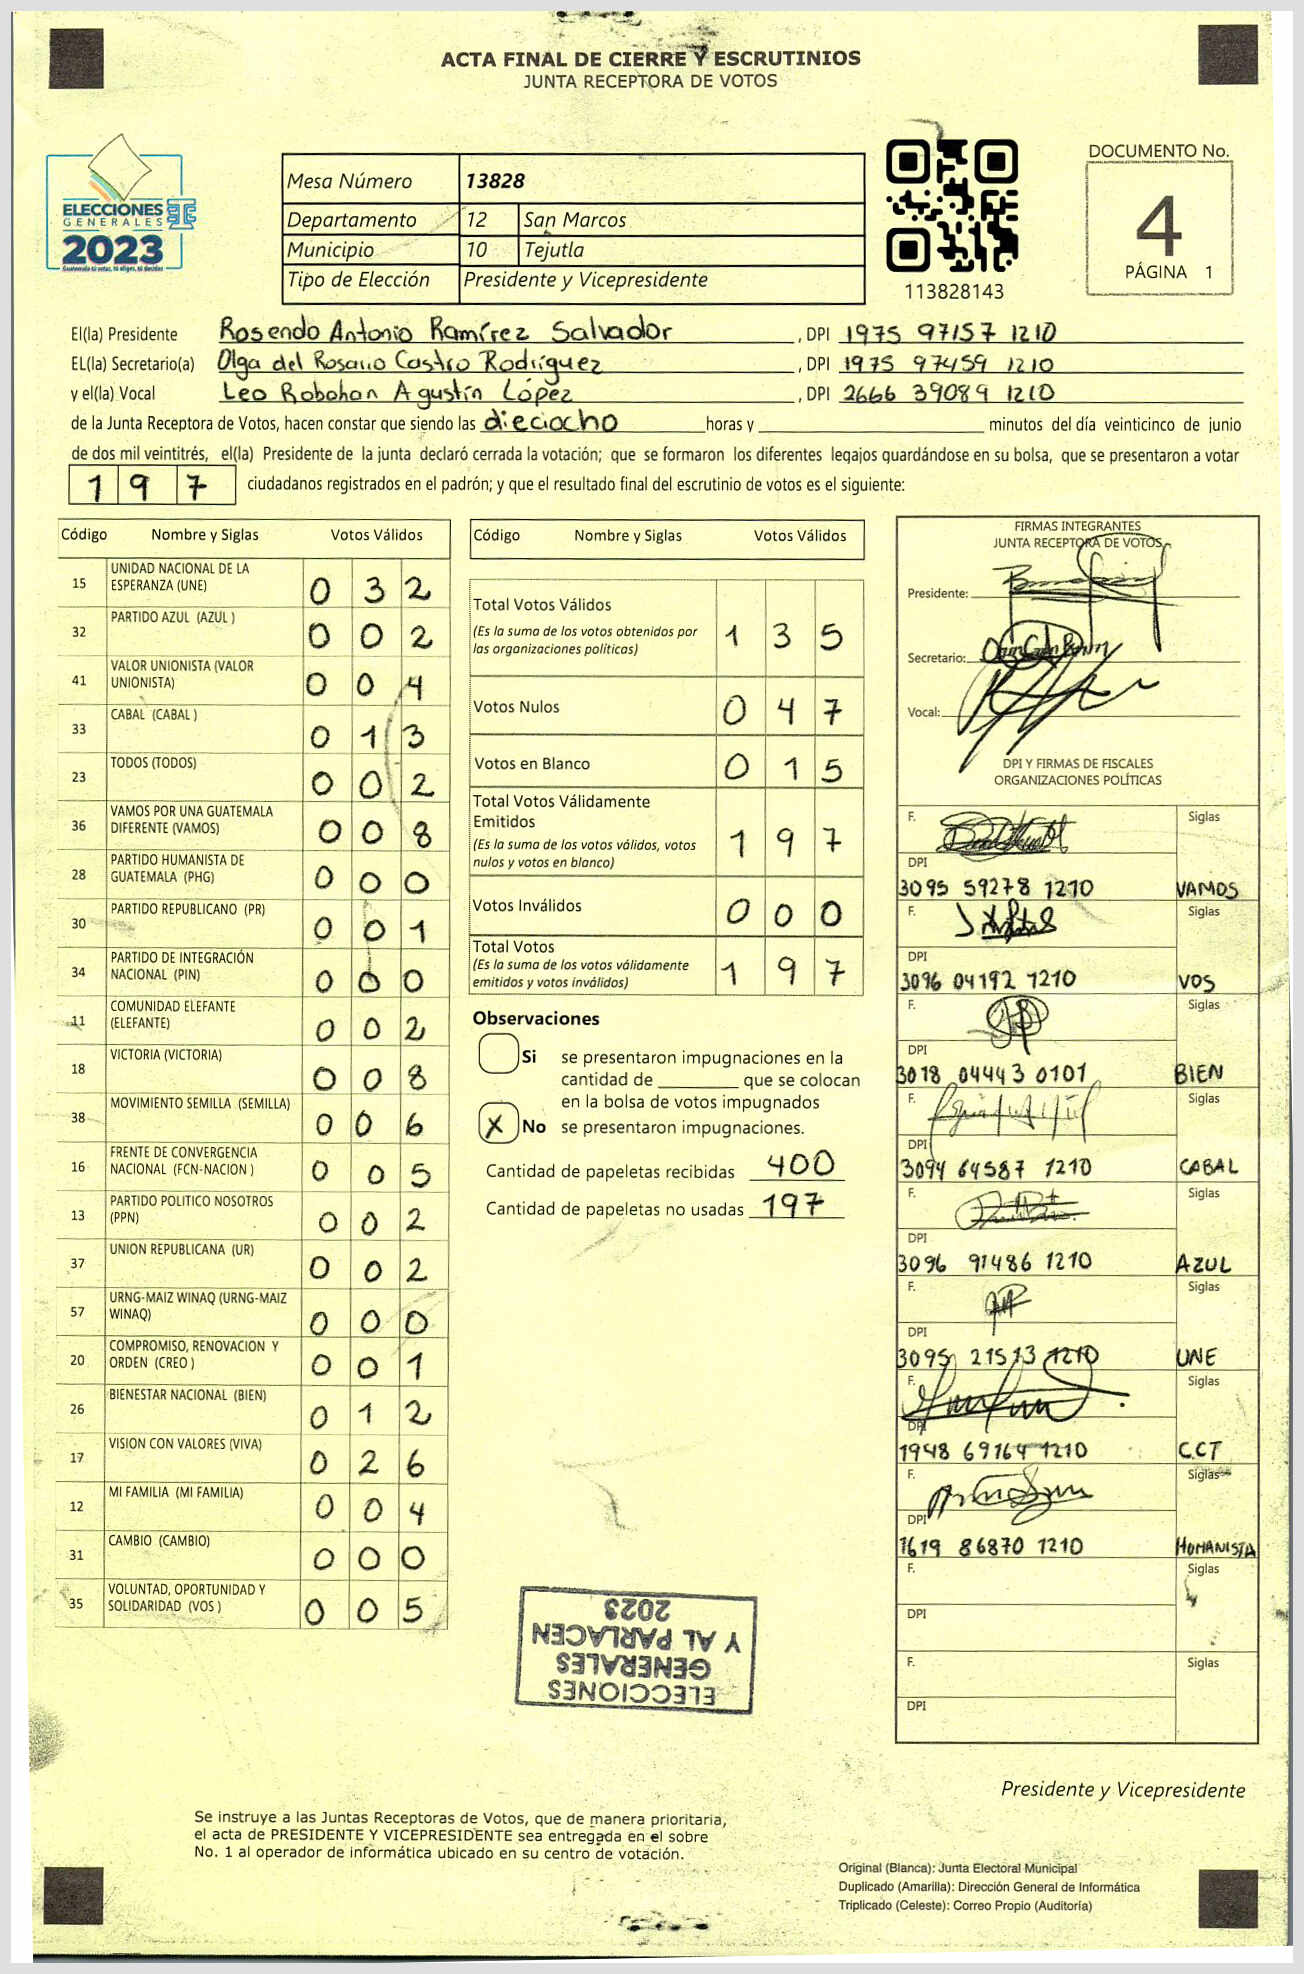 ACTA FINAL DE CIERRE Y ESCRUTINIOS
JUNTA RECEPTORA DE VOTOS
ELECCIONES
GENERALES
2023
Mesa Número 13828
Departamento 12 San Marcos
Municipio 10 Tejutla
Tipo de Elección Presidente y Vicepresidente
113828143
DOCUMENTO No.
4
PÁGINA 1
El(la) Presidente Rosendo Antonio Ramírez Salvador , DPI 1975 97157 1210
EL(la) Secretario(a) Olga del Rosario Castro Rodríguez , DPI 1975 97459 1210
y el(la) Vocal Leo Robohan Agustín López , DPI 2666 39089 1210
de la Junta Receptora de Votos, hacen constar que siendo las dieciocho horas y minutos del día veinticinco de junio
de dos mil veintitrés, el(la) Presidente de la junta declaró cerrada la votación; que se formaron los diferentes legajos guardándose en su bolsa, que se presentaron a votar
197 ciudadanos registrados en el padrón; y que el resultado final del escrutinio de votos es el siguiente:
Código Nombre y Siglas Votos Válidos
15 UNIDAD NACIONAL DE LA
ESPERANZA (UNE) 0 3 2
32 PARTIDO AZUL (AZUL ) 0 0 2
41 VALOR UNIONISTA (VALOR
UNIONISTA) 0 0 4
33 CABAL (CABAL ) 0 1 3
23 TODOS (TODOS) 0 0 2
36 VAMOS POR UNA GUATEMALA
DIFERENTE (VAMOS) 0 0 8
28 PARTIDO HUMANISTA DE
GUATEMALA (PHG) 0 0 0
30 PARTIDO REPUBLICANO (PR) 0 0 1
34 PARTIDO DE INTEGRACIÓN
NACIONAL (PIN) 0 0 0
11 COMUNIDAD ELEFANTE
(ELEFANTE) 0 0 2
18 VICTORIA (VICTORIA) 0 0 8
38 MOVIMIENTO SEMILLA (SEMILLA) 0 0 6
16 FRENTE DE CONVERGENCIA
NACIONAL (FCN-NACION ) 0 0 5
13 PARTIDO POLITICO NOSOTROS
(PPN) 0 0 2
37 UNION REPUBLICANA (UR) 0 0 2
57 URNG-MAIZ WINAQ (URNG-MAIZ
WINAQ) 0 0 0
20 COMPROMISO, RENOVACION Y
ORDEN (CREO ) 0 0 1
26 BIENESTAR NACIONAL (BIEN) 0 1 2
17 VISION CON VALORES (VIVA) 0 2 6
12 MI FAMILIA (MI FAMILIA) 0 0 4
31 CAMBIO (CAMBIO) 0 0 0
35 VOLUNTAD, OPORTUNIDAD Y
SOLIDARIDAD (VOS ) 0 0 5
Código Nombre y Siglas Votos Válidos
Total Votos Válidos
(Es la suma de los votos obtenidos por
las organizaciones políticas) 1 3 5
Votos Nulos 0 4 7
Votos en Blanco 0 1 5
Total Votos Válidamente
Emitidos
(Es la suma de los votos válidos, votos
nulos y votos en blanco) 1 9 7
Votos Inválidos 0 0 0
Total Votos
(Es la suma de los votos válidamente
emitidos y votos inválidos) 1 9 7
Observaciones
Si se presentaron impugnaciones en la
cantidad de que se colocan
en la bolsa de votos impugnados
X No se presentaron impugnaciones.
Cantidad de papeletas recibidas 400
Cantidad de papeletas no usadas 197
ELECCIONES
GENERALES
Y AL PARLACEN
2023
FIRMAS INTEGRANTES
JUNTA RECEPTORA DE VOTOS
Presidente:
Secretario:
Vocal:
DPI Y FIRMAS DE FISCALES
ORGANIZACIONES POLÍTICAS
F. Siglas
DPI
3095 59278 1210 VAMOS
F. Siglas
DPI
3096 04192 1210 VOS
F. Siglas
DPI
3018 04443 0101 BIEN
F. Siglas
DPI
3094 64587 1210 CABAL
F. Siglas
DPI
3096 91486 1210 AZUL
F. Siglas
DPI
3095 21513 1210 UNE
F. Siglas
DPI
1948 69164 1210 C.CT
F. Siglas
DPI
1619 86870 1210 HUMANISTA
F. Siglas
DPI
F. Siglas
DPI
Presidente y Vicepresidente
Se instruye a las Juntas Receptoras de Votos, que de manera prioritaria,
el acta de PRESIDENTE Y VICEPRESIDENTE sea entregada en el sobre
No. 1 al operador de informática ubicado en su centro de votación.
Original (Blanca): Junta Electoral Municipal
Duplicado (Amarilla): Dirección General de Informática
Triplicado (Celeste): Correo Propio (Auditoría)